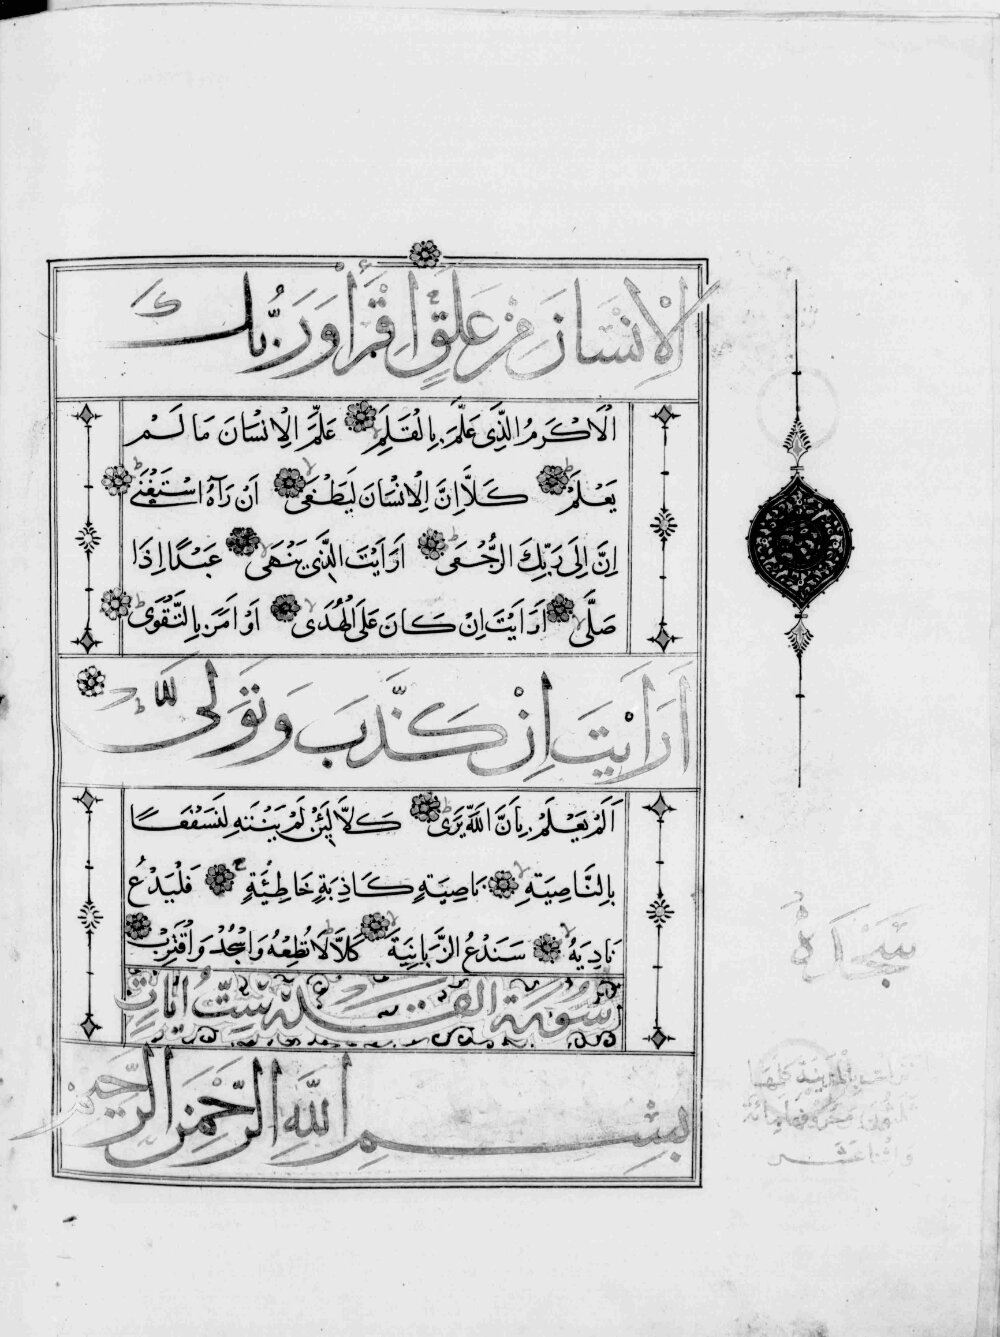 الْاِنْسَانَ مِنْ عَلَقٍ اِقْرَأْ وَرَبُّكَ
الْاَكْرَمُ الَّذِى عَلَّمَ بِالْقَلَمِ عَلَّمَ الْاِنْسَانَ مَا لَمْ
يَعْلَمْ كَلَّا اِنَّ الْاِنْسَانَ لَيَطْغَى اَنْ رَآهُ اسْتَغْنَى
اِنَّ اِلَى رَبِّكَ الرُّجْعَى اَرَاَيْتَ الَّذِى يَنْهَى عَبْدًا اِذَا
صَلَّى اَرَاَيْتَ اِنْ كَانَ عَلَى الْهُدَى اَوْ اَمَرَ بِالتَّقْوَى
اَرَاَيْتَ اِنْ كَذَّبَ وَتَوَلَّى
اَلَمْ يَعْلَمْ بِاَنَّ اللّٰهَ يَرَى كَلَّا لَئِنْ لَمْ يَنْتَهِ لَنَسْفَعًا
بِالنَّاصِيَةِ نَاصِيَةٍ كَاذِبَةٍ خَاطِئَةٍ فَلْيَدْعُ
نَادِيَهُ سَنَدْعُ الزَّبَانِيَةَ كَلَّا لَا تُطِعْهُ وَاسْجُدْ وَاقْتَرِبْ
سُورَةُ الْقَدْرِ سِتُّ اٰيَاتٍ
بِسْمِ اللّٰهِ الرَّحْمٰنِ الرَّحِيمِ
نزلت بالمدينة كلمها
ثلثون
واثنا عشر